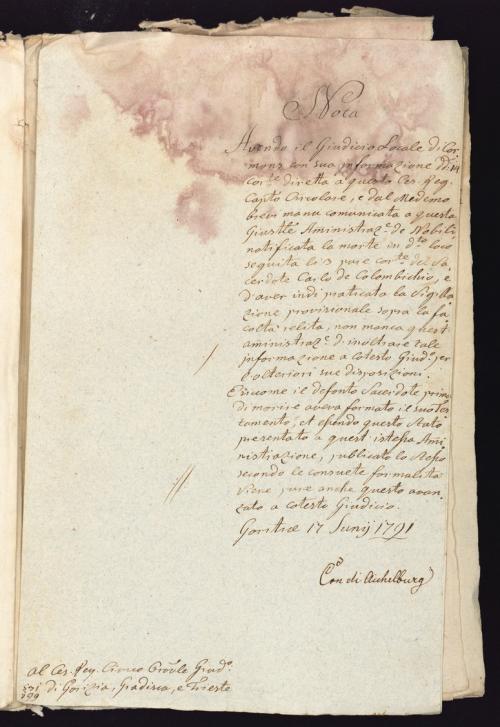 Nota
Avendo il Giudicio Locale di Cor-
mons con sua informazione ddi 14
corte diretta a questo Ces. Reg.
Capto Circolare, e dal Medemo
brevi manu comunicata a questa
Giustle Aministraze de Nobili
notificata la morte in dto loco
seguita li 3 pure corte del Sa-
cerdote Carlo de Colombichio, e
d'aver indi praticata la Sigilla-
zione provisionale sopra la fa-
coltà relita, non manca quest'
aministraze d'inoltrare tale
informazione a cotesto Giudo per
l'olteriori sue disposizioni.
E siccome il defonto Sacerdote prima
di morire aveva formato il suo Tes-
tamento, et essendo questo stato
presentato a quest' istessa Ami-
nistrazione, publicato lo stesso
secondo le consuete formalità
viene pure anche questo avan-
zato a cotesto Giudicio.
Goritiæ 17 Junij 1791
Con di Aichelburg
Al Ces. Reg. Civico Provle Giudo
di Gorizia, Gradisca, e Trieste